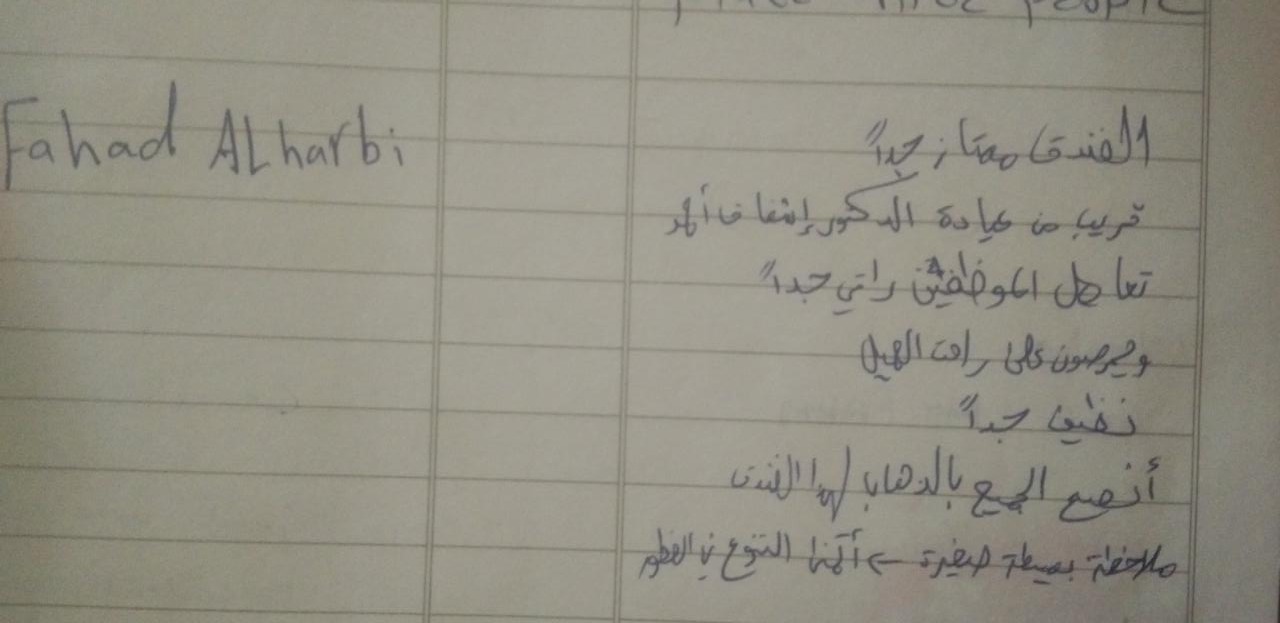 people
Fahad ALharbi
الفندق ممتاز جداً
قريب من عيادة الدكتور إشفاق أحمد
تعامل الموظفين راقي جداً
ويحرصون على راحت العميل
نظيف جداً
أنصح الجميع بالذهاب لهذا الفندق
ملاحظة بسيطة صغيرة -> أتمنا التنوع في الفطور